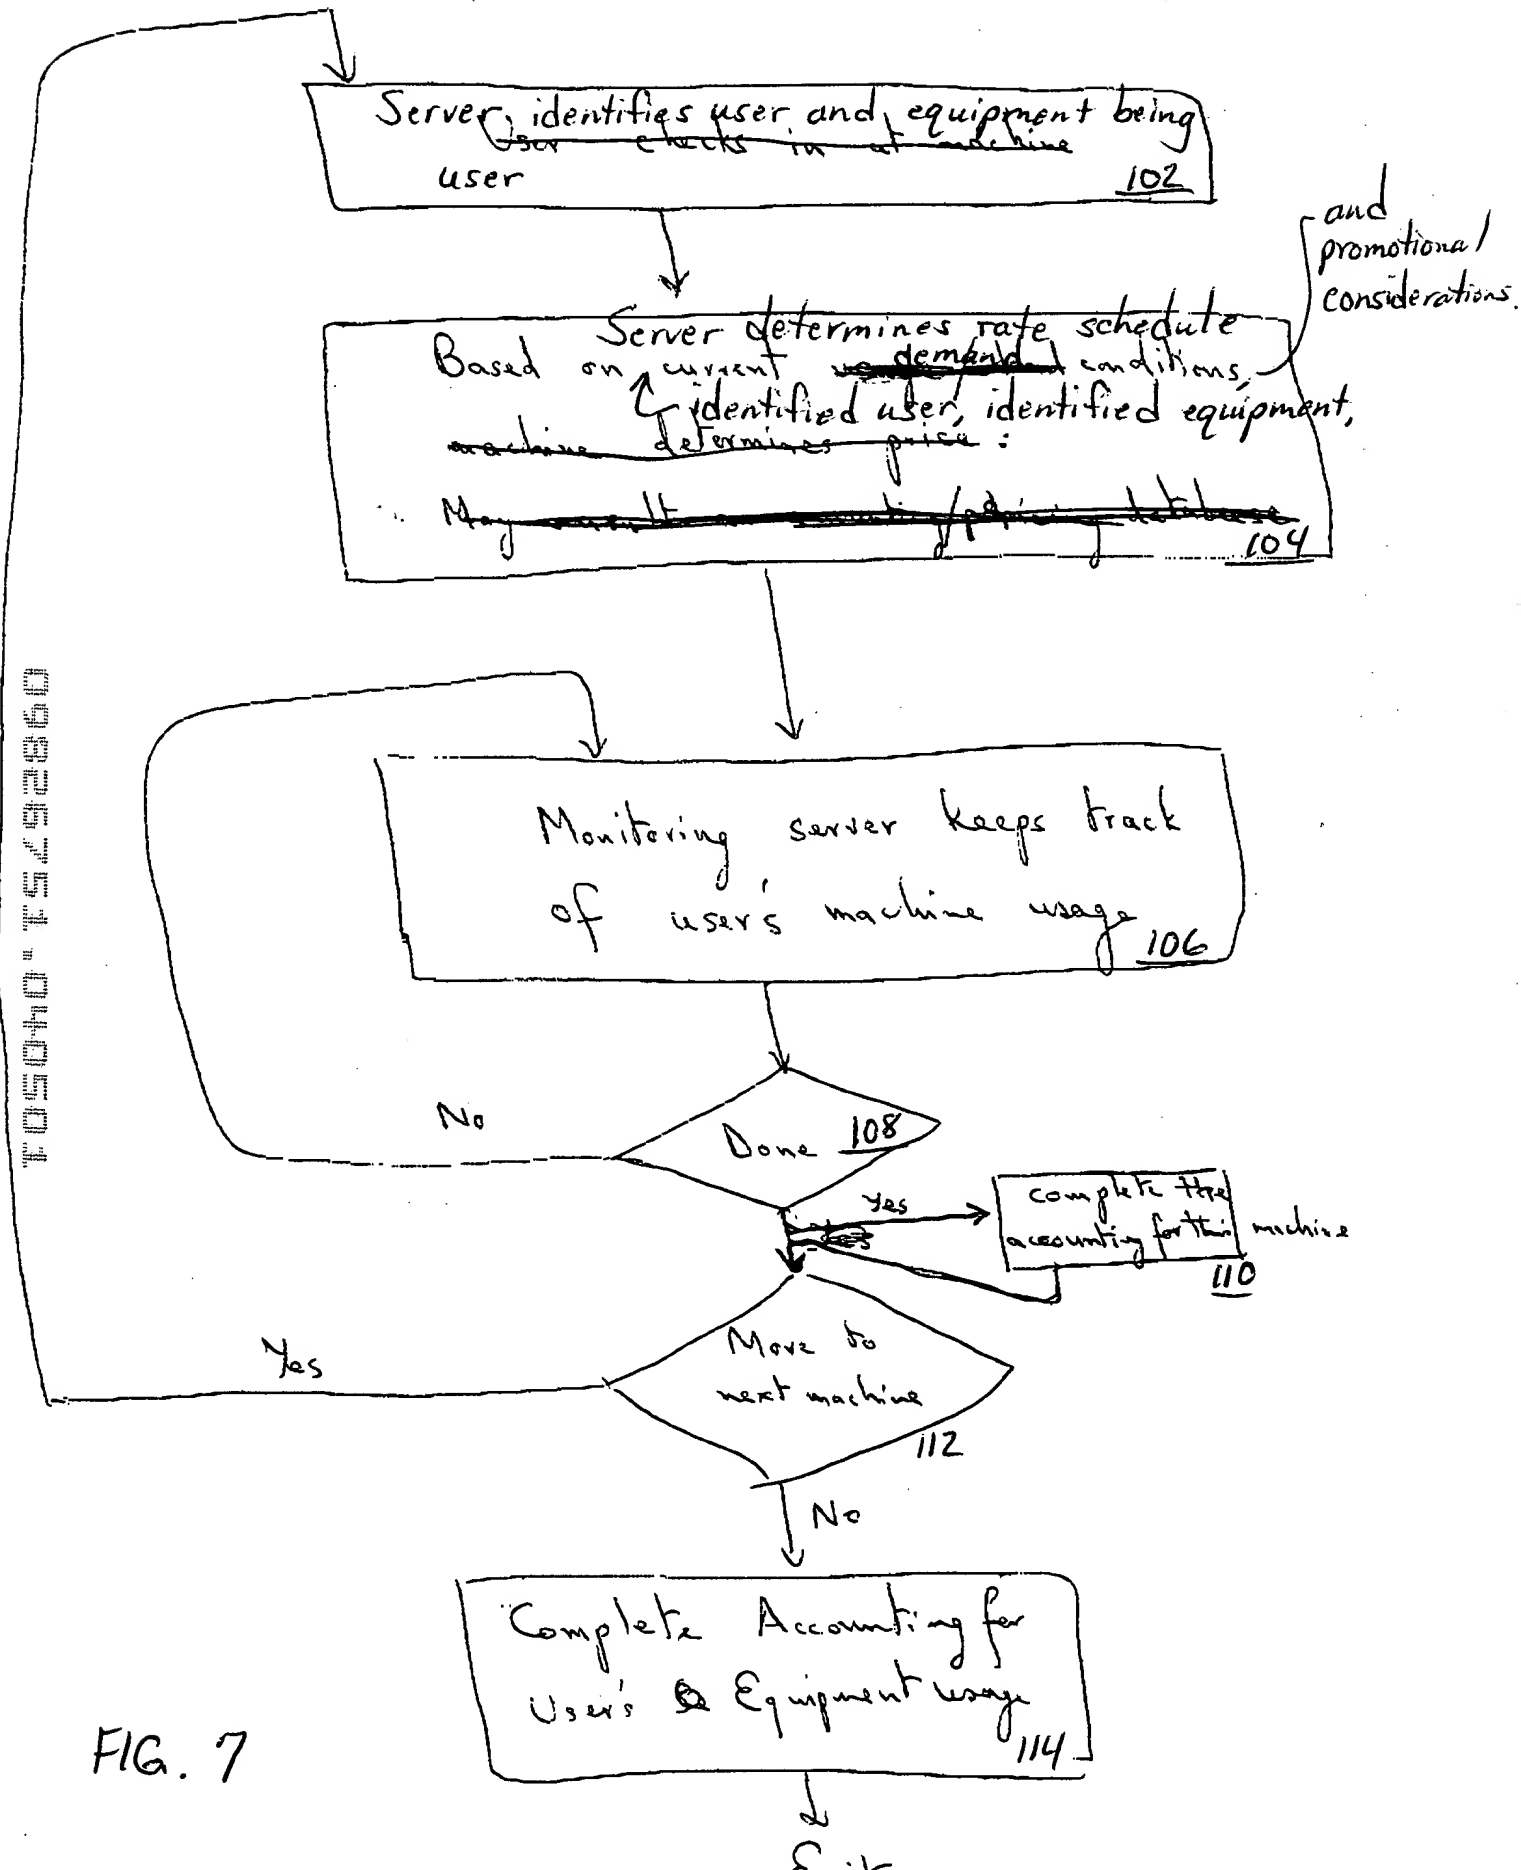 Server identifies user and equipment being
User checks in at machine
user
102
and
promotional
considerations.
Server determines rate schedule
Based on current demand conditions,
identified user, identified equipment,
machine determines price:
May database
104
Monitoring server keeps track
of user's machine usage
106
No
Done 108
Yes
complete the
accounting for this machine
110
Yes
Move to
next machine
112
No
Complete Accounting for
User's Equipment usage
114
FIG. 7
Exit
09826751.040501